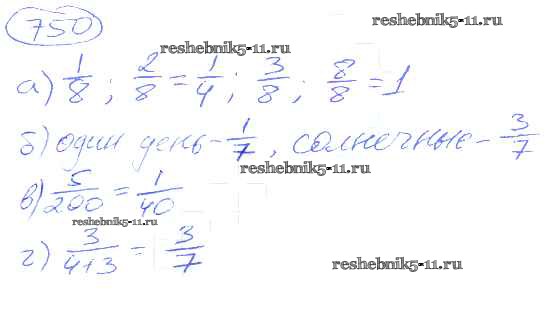 750
reshebnik5-11.ru
reshebnik5-11.ru
а) 1/8; 2/8 = 1/4; 3/8; 8/8 = 1
б) один день - 1/7, солнечные - 3/7
reshebnik5-11.ru
в) 5/200 = 1/40
reshebnik5-11.ru
г) 3/4+3 = 3/7
reshebnik5-11.ru